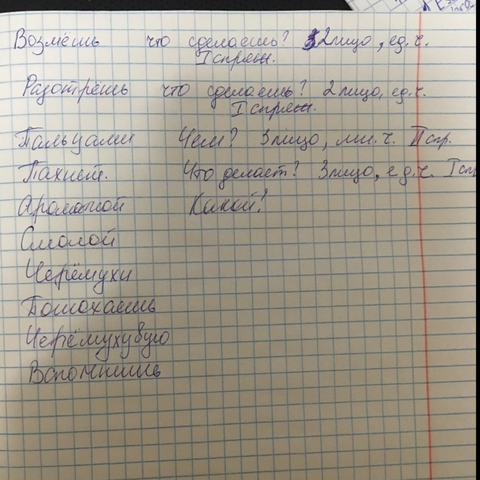 Возмёшь что сделаешь? 2 лицо, ед.ч.
I спряж.
Разотрёшь что сделаешь? 2 лицо, ед.ч.
I спряж.
Пальцами Чем? 3 лицо, мн.ч. II спр.
Пахнет. Что делает? 3 лицо, ед.ч. I спр
Ароматной Какой?
Смолой
Черёмухи
Черёмухубую
Вспомнишь